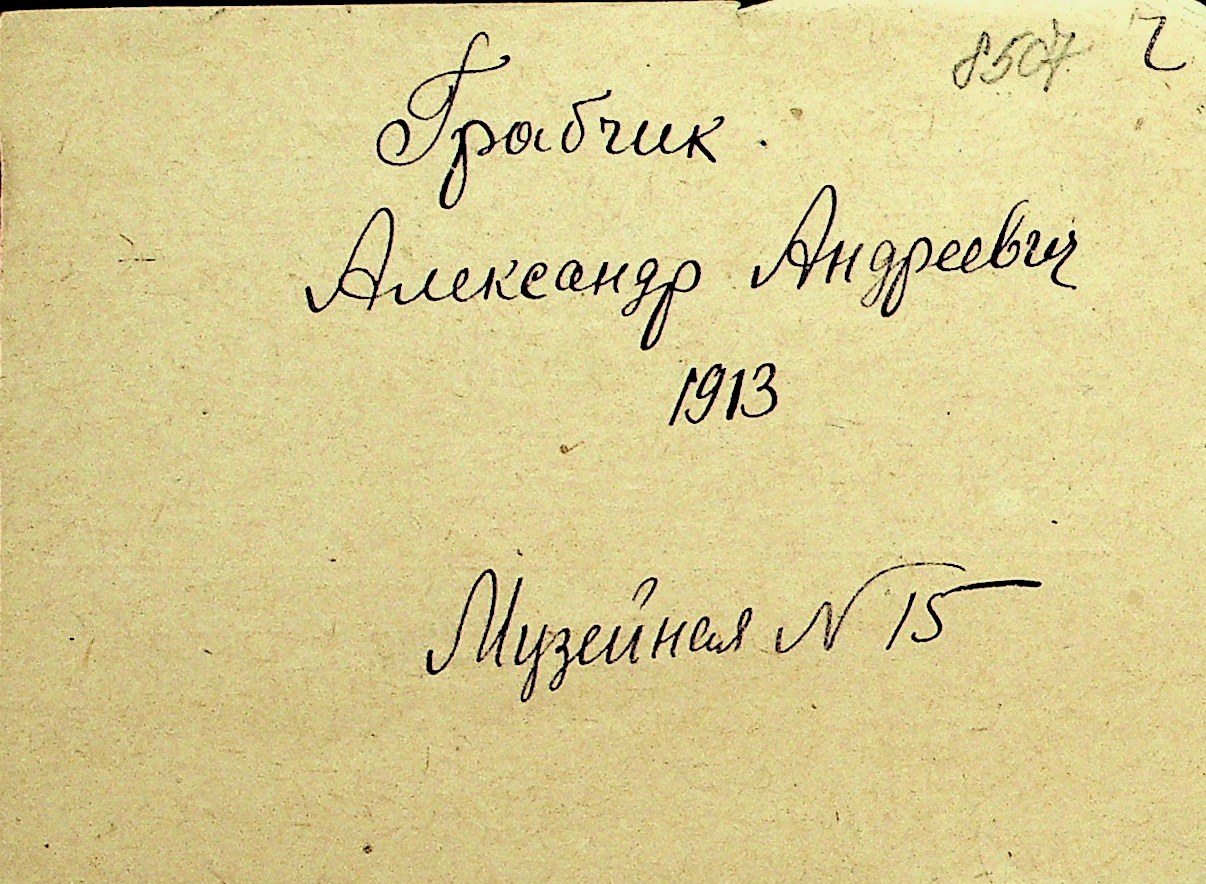 8507 г
Грабчик.
Александр Андреевич
1913
Музейная N 15